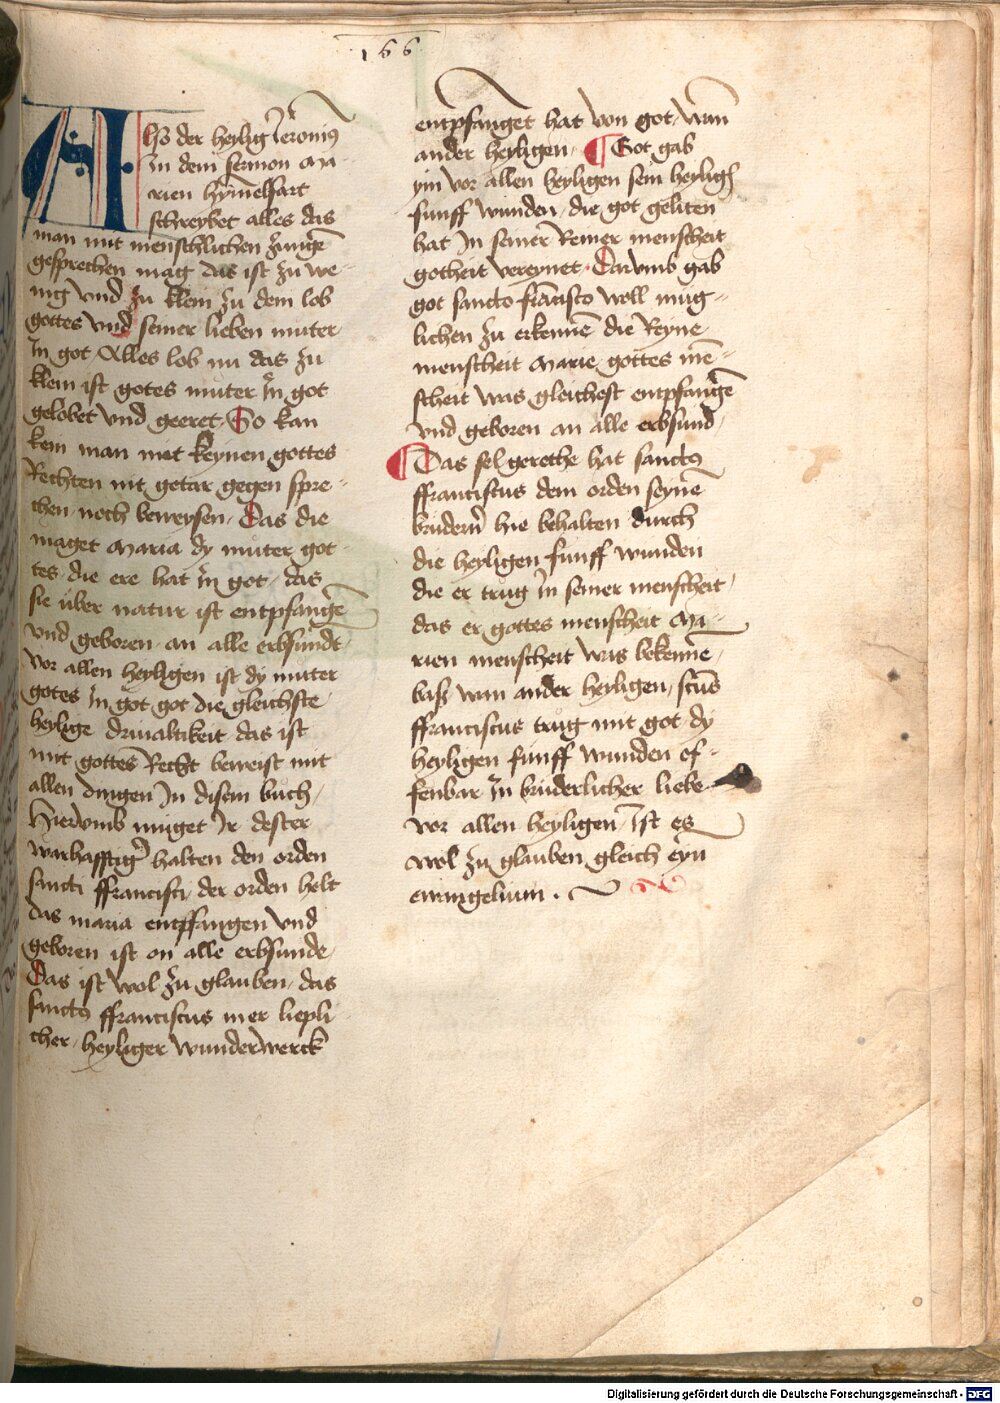 166
Alßo der heylig Ieronimꝰ
in dem sermon Ma-
rien hymelfart
schreybet alles das
man mit menschlichen zungē
gesprechen mag das ist zu we-
nig vnd zu klein zu dem lob
gottes vnd seiner lieben muter
in got Alles lob nu das zu
klein ist gotes muter in got
gelobet vnd geeret. So kan
kein man mit keynen gottes
Rechten nit getar gegen spre-
chen noch beweysen. Das die
maget Maria dy muter got-
tes die ere hat in got, das
sie über natur ist entpfangē
vnd geboren an alle erbsundt
vor allen heyligen ist dy muter
gotes in got got die gleichste
heylige driualtikeit das ist
mit gottes Recht beweist mit
allen dingen In disem buch,
Hierumb muget Ir dester
warhafftigꝰ halten den orden
sancti ffrancisci, der orden helt
das maria entpfangen vnd
geboren ist on alle erbsunde,
Das ist wol zu glauben, das
sanctꝰ ffranciscus mer liepli
cher, heyliger wunderwerck
entpfanget hat von got, wan̄
ander heyligen. Got gab
ym vor allen heyligen sein heylige
funff wunden, die got geliten
hat In seiner Reiner menscheit
gotheit vereynet. Darumb gab
got sancto francisco woll mug-
lichen zu erkennē die Reyne
menscheit Marie, gottes mē-
scheit was gleichest entpfangē
vnd geboren an alle erbsund,
Das sel gerethe hat sanctꝰ
ffranciscus dem orden seynē
brudern hie behalten durch
die heyligen funff wunden
die er trug in seiner menscheit,
das er gottes menscheit Ma-
rien menscheit was bekennē,
baß wan ander heyligen, sctūs
ffranciscus trug mit got dy
heyligen funff wunden of-
fenbar in bruderlicher liebe
vor allen heyligen, Ist es
wol zu glauben gleich eyn
ewangelium.
Digitalisierung gefördert durch die Deutsche Forschungsgemeinschaft - DFG